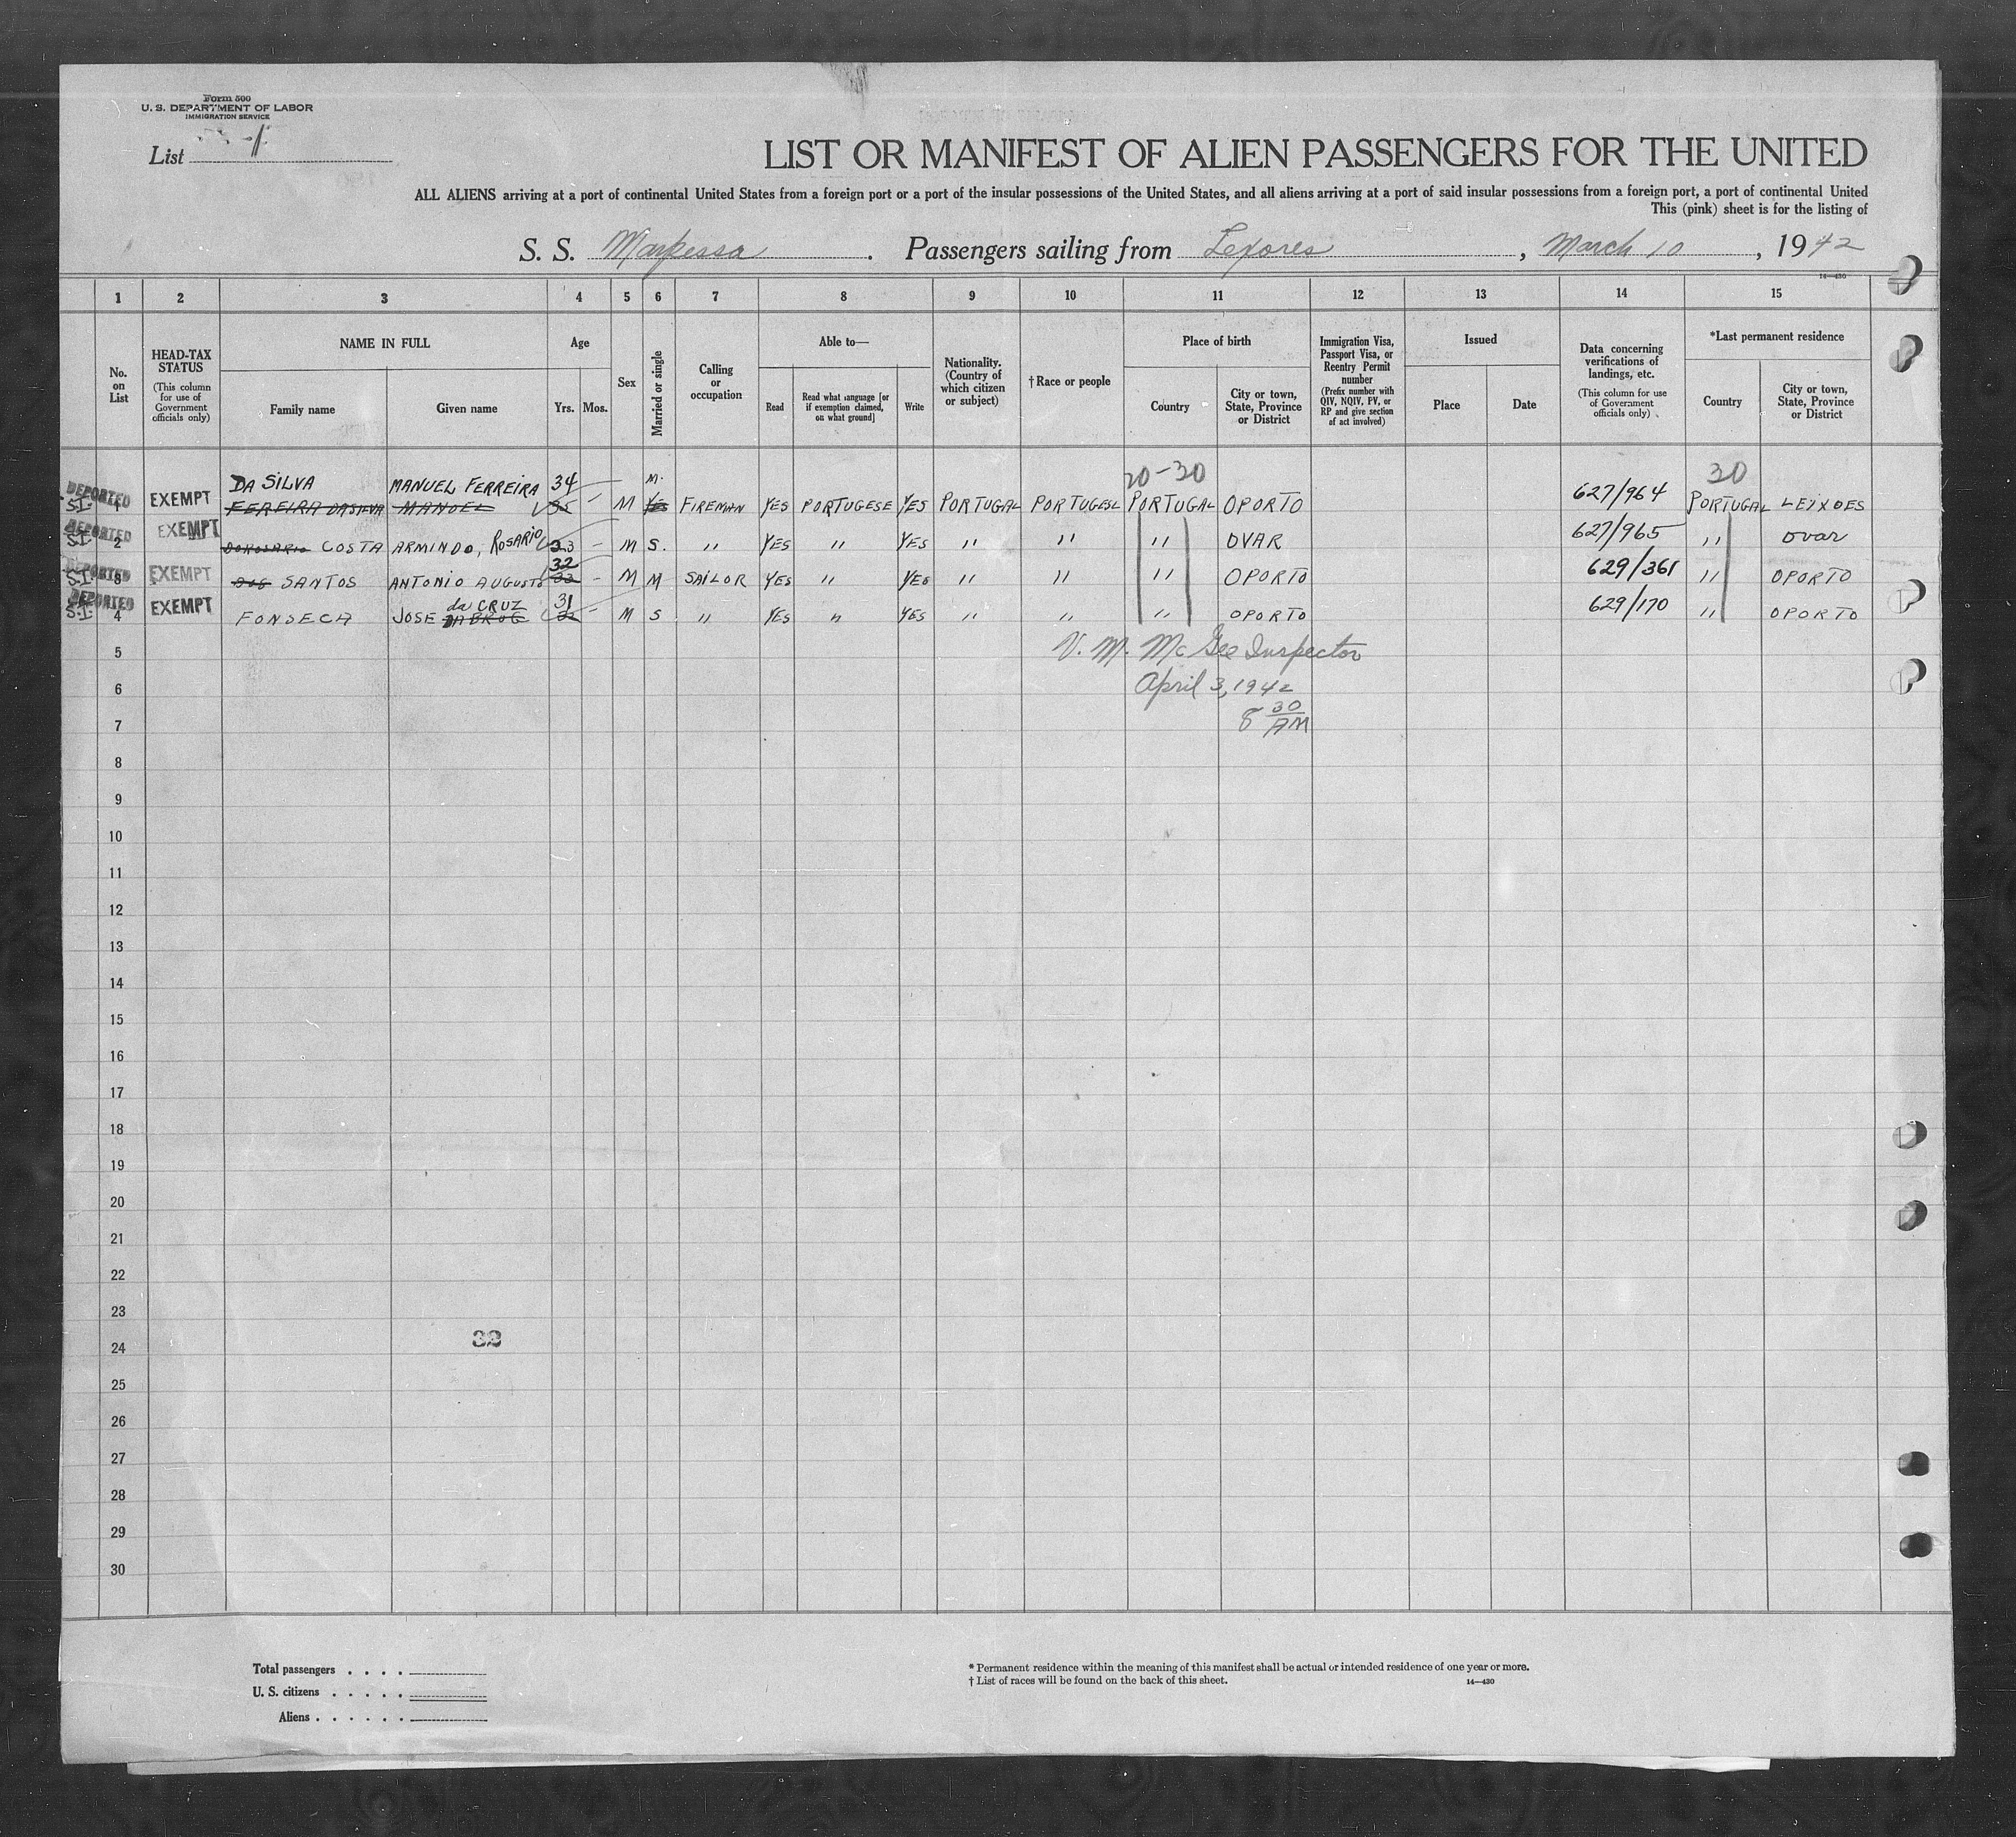 Form 500
U. S. DEPARTMENT OF LABOR
IMMIGRATION SERVICE
List 1
LIST OR MANIFEST OF ALIEN PASSENGERS FOR THE UNITED
ALL ALIENS arriving at a port of continental United States from a foreign port or a port of the insular possessions of the United States, and all aliens arriving at a port of said insular possessions from a foreign port, a port of continental United
This (pink) sheet is for the listing of
S. S. Markessa . Passengers sailing from Lexores , March 10 , 1942
14—430
1 2 3 4 5 6 7 8 9 10 11 12 13 14 15
No. on List
HEAD-TAX STATUS (This column for use of Government officials only)
NAME IN FULL
Family name
Given name
Age
Yrs. Mos.
Sex
Married or single
Calling or occupation
Able to—
Read
Read what language [or if exemption claimed, on what ground]
Write
Nationality. (Country of which citizen or subject)
†Race or people
Place of birth
Country
City or town, State, Province or District
Immigration Visa, Passport Visa, or Reentry Permit number (Prefix number with QIV, NQIV, PV, or RP and give section of act involved)
Issued
Place
Date
Data concerning verifications of landings, etc. (This column for use of Government officials only)
*Last permanent residence
Country
City or town, State, Province or District
20-30 30
DA SILVA MANUEL FERREIRA 34 M. 627/964
DEPORTED S.I. 1 EXEMPT FEREIRA DASILVA MANOEL 35 - M Yes FIREMAN YES PORTUGESE YES PORTUGAL PORTUGESE PORTUGAL OPORTO PORTUGAL LEIXOES
DEPORTED S.I. 2 EXEMPT DOROSARIO COSTA ARMINDO, ROSARIO 23 - M S. " YES " YES " " " OVAR 627/965 " ovar
32
DEPORTED S.I. 3 EXEMPT DOS SANTOS ANTONIO AUGUSTO 33 - M M SAILOR YES " YES " " " OPORTO 629/361 " OPORTO
da CRUZ 31
DEPORTED S.I. 4 EXEMPT FONSECA JOSE DA BROG 32 - M S " YES " YES " " " OPORTO 629/170 " OPORTO
5 V. M. McGee Inspector
6 April 3, 1942
7 8 30 AM
8
9
10
11
12
13
14
15
16
17
18
19
20
21
22
23
32
24
25
26
27
28
29
30
Total passengers . . . .
U. S. citizens . . . . .
Aliens . . . . . .
* Permanent residence within the meaning of this manifest shall be actual or intended residence of one year or more.
† List of races will be found on the back of this sheet. 14—430